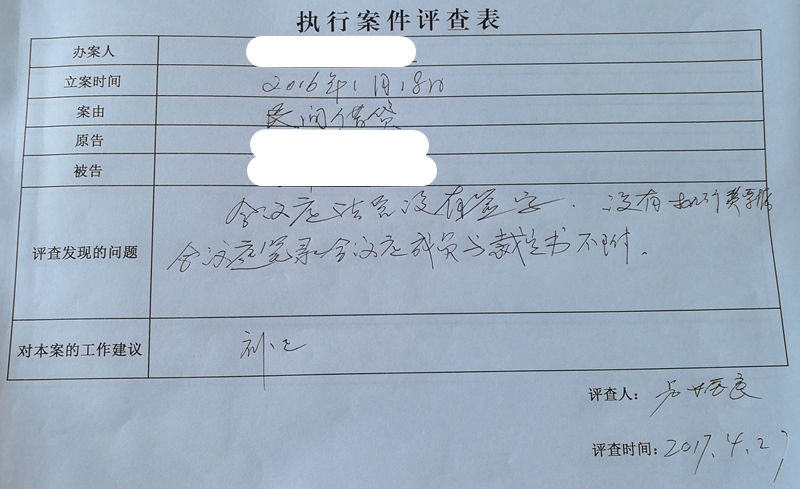 执行案件评查表
办案人
立案时间 2016年1月18日
案由 民间借贷
原告
被告
评查发现的问题 合议庭法官没有签字. 没有执行费票据
合议庭笔录合议庭成员与裁定书不符.
对本案的工作建议 补正
评查人:
评查时间: 2017.4.27